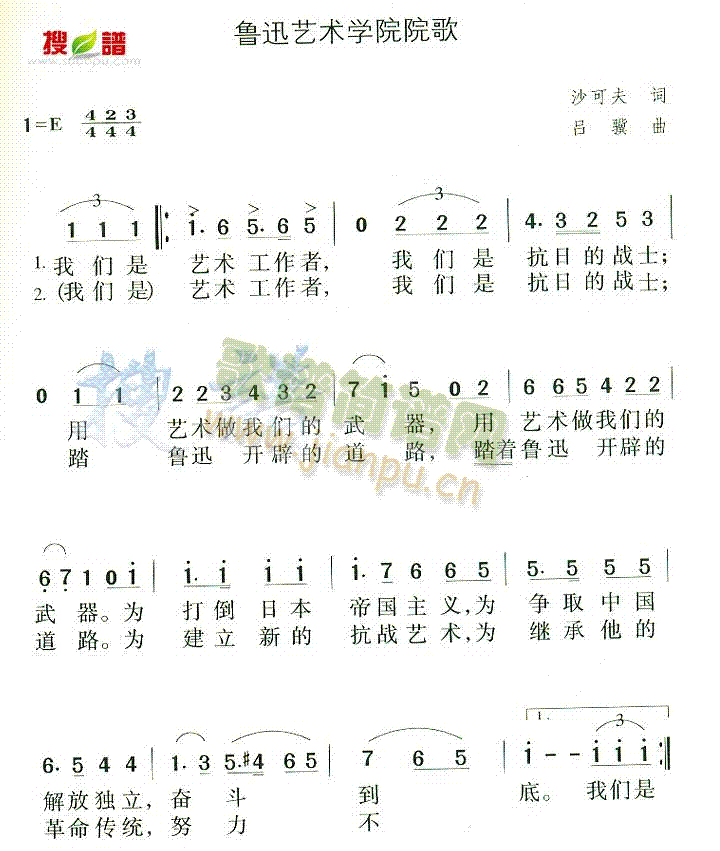 鲁迅艺术学院院歌
搜 譜
www.sooopu.com
沙可夫 词
1=E 4/4 2/4 3/4
吕 骥 曲
3 3
1 1 1 1. 6 5. 6 5 0 2 2 2 4. 3 2 5 3
1. 我们是 艺术 工作者, 我们是 抗日的战士;
2. (我们是) 艺术 工作者, 我们是 抗日的战士;
歌谱简谱网
www.jianpu.cn
0 1 1 2 2 3 4 3 2 7 i 5 0 2 6 6 5 4 2 2
用 艺术做我们的 武 器, 用 艺术做我们的
踏 鲁迅 开辟的 道 路, 踏着鲁迅 开辟的
6 7 1 0 i i. i i i i. 7 6 6 5 5. 5 5 5
武 器。为 打倒日本 帝国主义,为 争取中国
道 路。为 建立新的 抗战艺术,为 继承他的
1.
3
6. 5 4 4 1. 3 5. #4 6 5 7 6 5 i - - i i i
解放独立, 奋 斗 到 底。 我们是
革命传统, 努 力 不